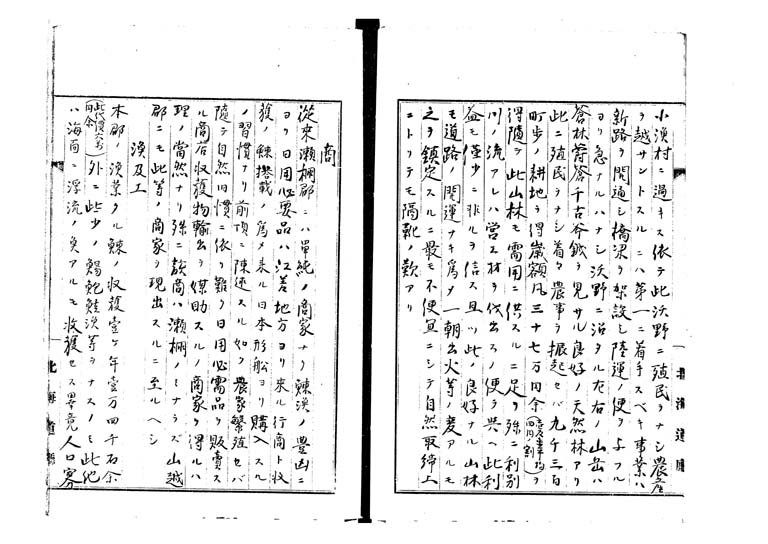 小漁村ニ過キス依テ此沃野ニ殖民ヲナシ農産
ヲ越サントスルニハ第一ニ着手スベキ事業ハ
新路ヲ開通シ橋梁ヲ架設シ陸運ノ便ヲ与フル
ヨリ急ナルハナシ沃野ニ沿タル左右ノ山岳ハ
蒼林欝蒼千古斧鉞ヲ見サル良好ノ天然林アリ
此ニ殖民ヲナシ着々農事ヲ振起セバ九千三百
町歩ノ耕地ヲ得歳額凡三十七万円余
得隨テ此山林モ需用ニ供スルニ足ル殊ニ利別
川ノ流アレハ営工材ヲ伐出スノ便ヲ与ヘ此利
益モ僅少ニ非ルヲ信ス且ツ此ノ良好ナル山林
モ道路ノ開運ナキ為メ一朝出火等ノ変アルモ
之ヲ鎮定スルニ最モ不便宜ニシテ自然取締上
ニトリテモ隔靴ノ歎アリ
北海道庁
商
従来瀬棚郡ニハ単純ノ商家ナク鰊漁ノ豊凶ニ
ヨリ日用必要品ハ江差地方ヨリ来ル行商ト収
獲ノ鰊搭載ノ為メ来ル日本形船ヨリ購入スル
ノ習慣ナリ前項ニ陳述スル如ク農家繁殖セバ
随テ自然旧慣ニ依リ難ク日用必需品ヲ販売ス
ル商店収獲物輸出ヲ媒助スルノ商家ヲ得ルハ
理ノ当然ナリ殊ニ該商ハ瀬棚ノミナラズ山越
郡ニモ此等ノ商家ヲ現出スルニ至ルヘシ
漁及工
本郡ノ漁業タル鰊ノ収獲壹ケ年壹万四千石余
外ニ些少ノ鱈鮑鮭漁等ヲナスノミ此他
ハ海面ニ浮流ノ魚アルモ収獲セス畢竟人口寡
北海道庁